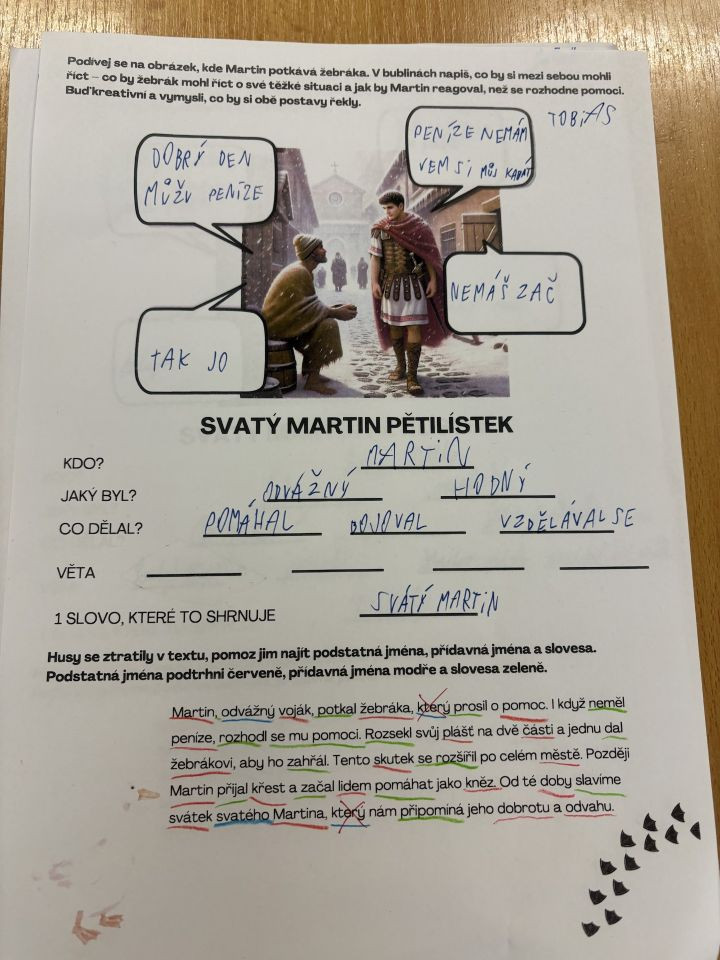 Podívej se na obrázek, kde Martin potkává žebráka. V bublinách napiš, co by si mezi sebou mohli
říct – co by žebrák mohl říct o své těžké situaci a jak by Martin reagoval, než se rozhodne pomoci.
Buď kreativní a vymysli, co by si obě postavy řekly.
TOBIAS
DOBRÝ DEN
MŮŽU PENÍZE
PENÍZE NEMÁM
VEM SI MŮJ KABÁT
NEMÁŠ ZAČ
TAK JO
SVATÝ MARTIN PĚTILÍSTEK
KDO? MARTIN
JAKÝ BYL? ODVÁŽNÝ HODNÝ
CO DĚLAL? POMÁHAL BOJOVAL VZDĚLÁVAL SE
VĚTA
1 SLOVO, KTERÉ TO SHRNUJE SVÁTÝ MARTIN
Husy se ztratily v textu, pomoz jim najít podstatná jména, přídavná jména a slovesa.
Podstatná jména podtrhni červeně, přídavná jména modře a slovesa zeleně.
Martin, odvážný voják, potkal žebráka, který prosil o pomoc. I když neměl
peníze, rozhodl se mu pomoci. Rozsekl svůj plášť na dvě části a jednu dal
žebrákovi, aby ho zahřál. Tento skutek se rozšířil po celém městě. Později
Martin přijal křest a začal lidem pomáhat jako kněz. Od té doby slavíme
svátek svatého Martina, který nám připomíná jeho dobrotu a odvahu.